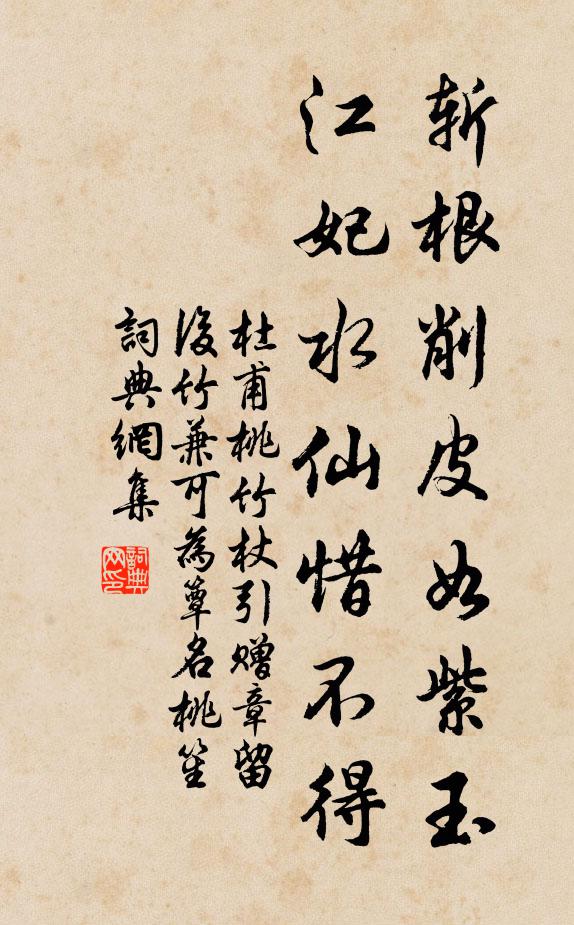 斬根削皮如紫玉
江妃水仙惜不得
杜甫桃竹杖引贈章留
後竹兼可為簟名桃笙
詞典網集
詞典
网印